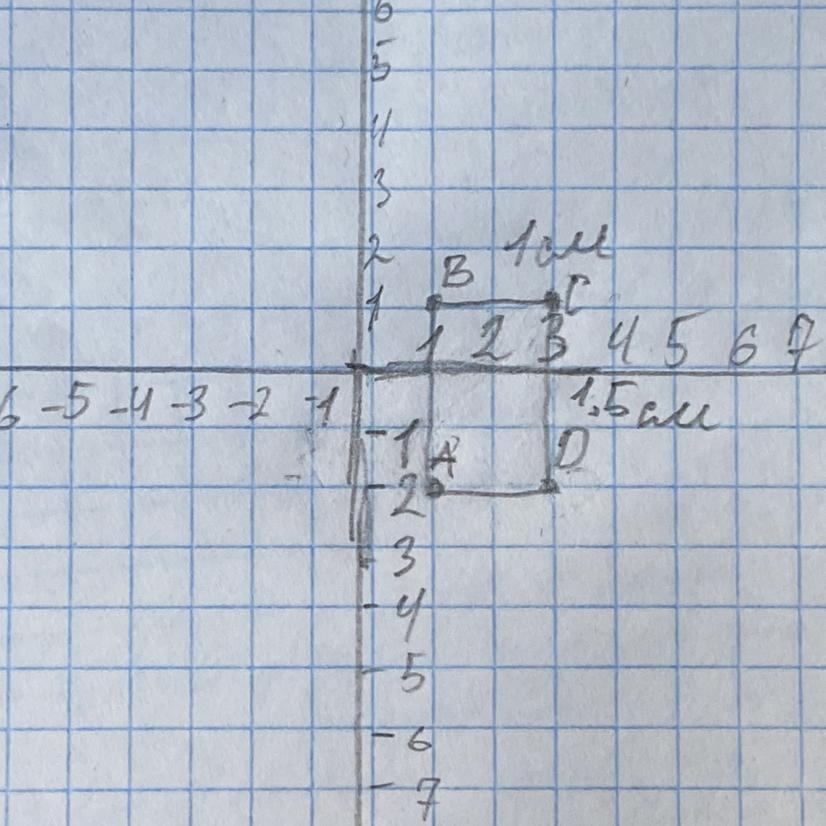 6
5
4
3
2
1см
B
1
C
1 2 3 4 5 6 7
6 -5 -4 -3 -2 -1
1,5см
-1
A
D
-2
-3
-4
-5
-6
-7